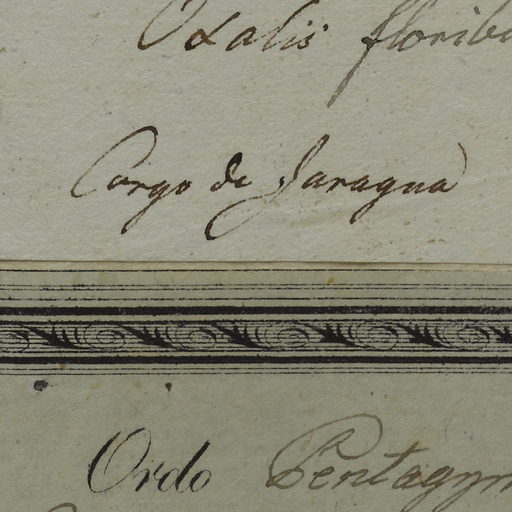 Oxalis floribu
Cargo de Jaragua
Ordo Pentagyn